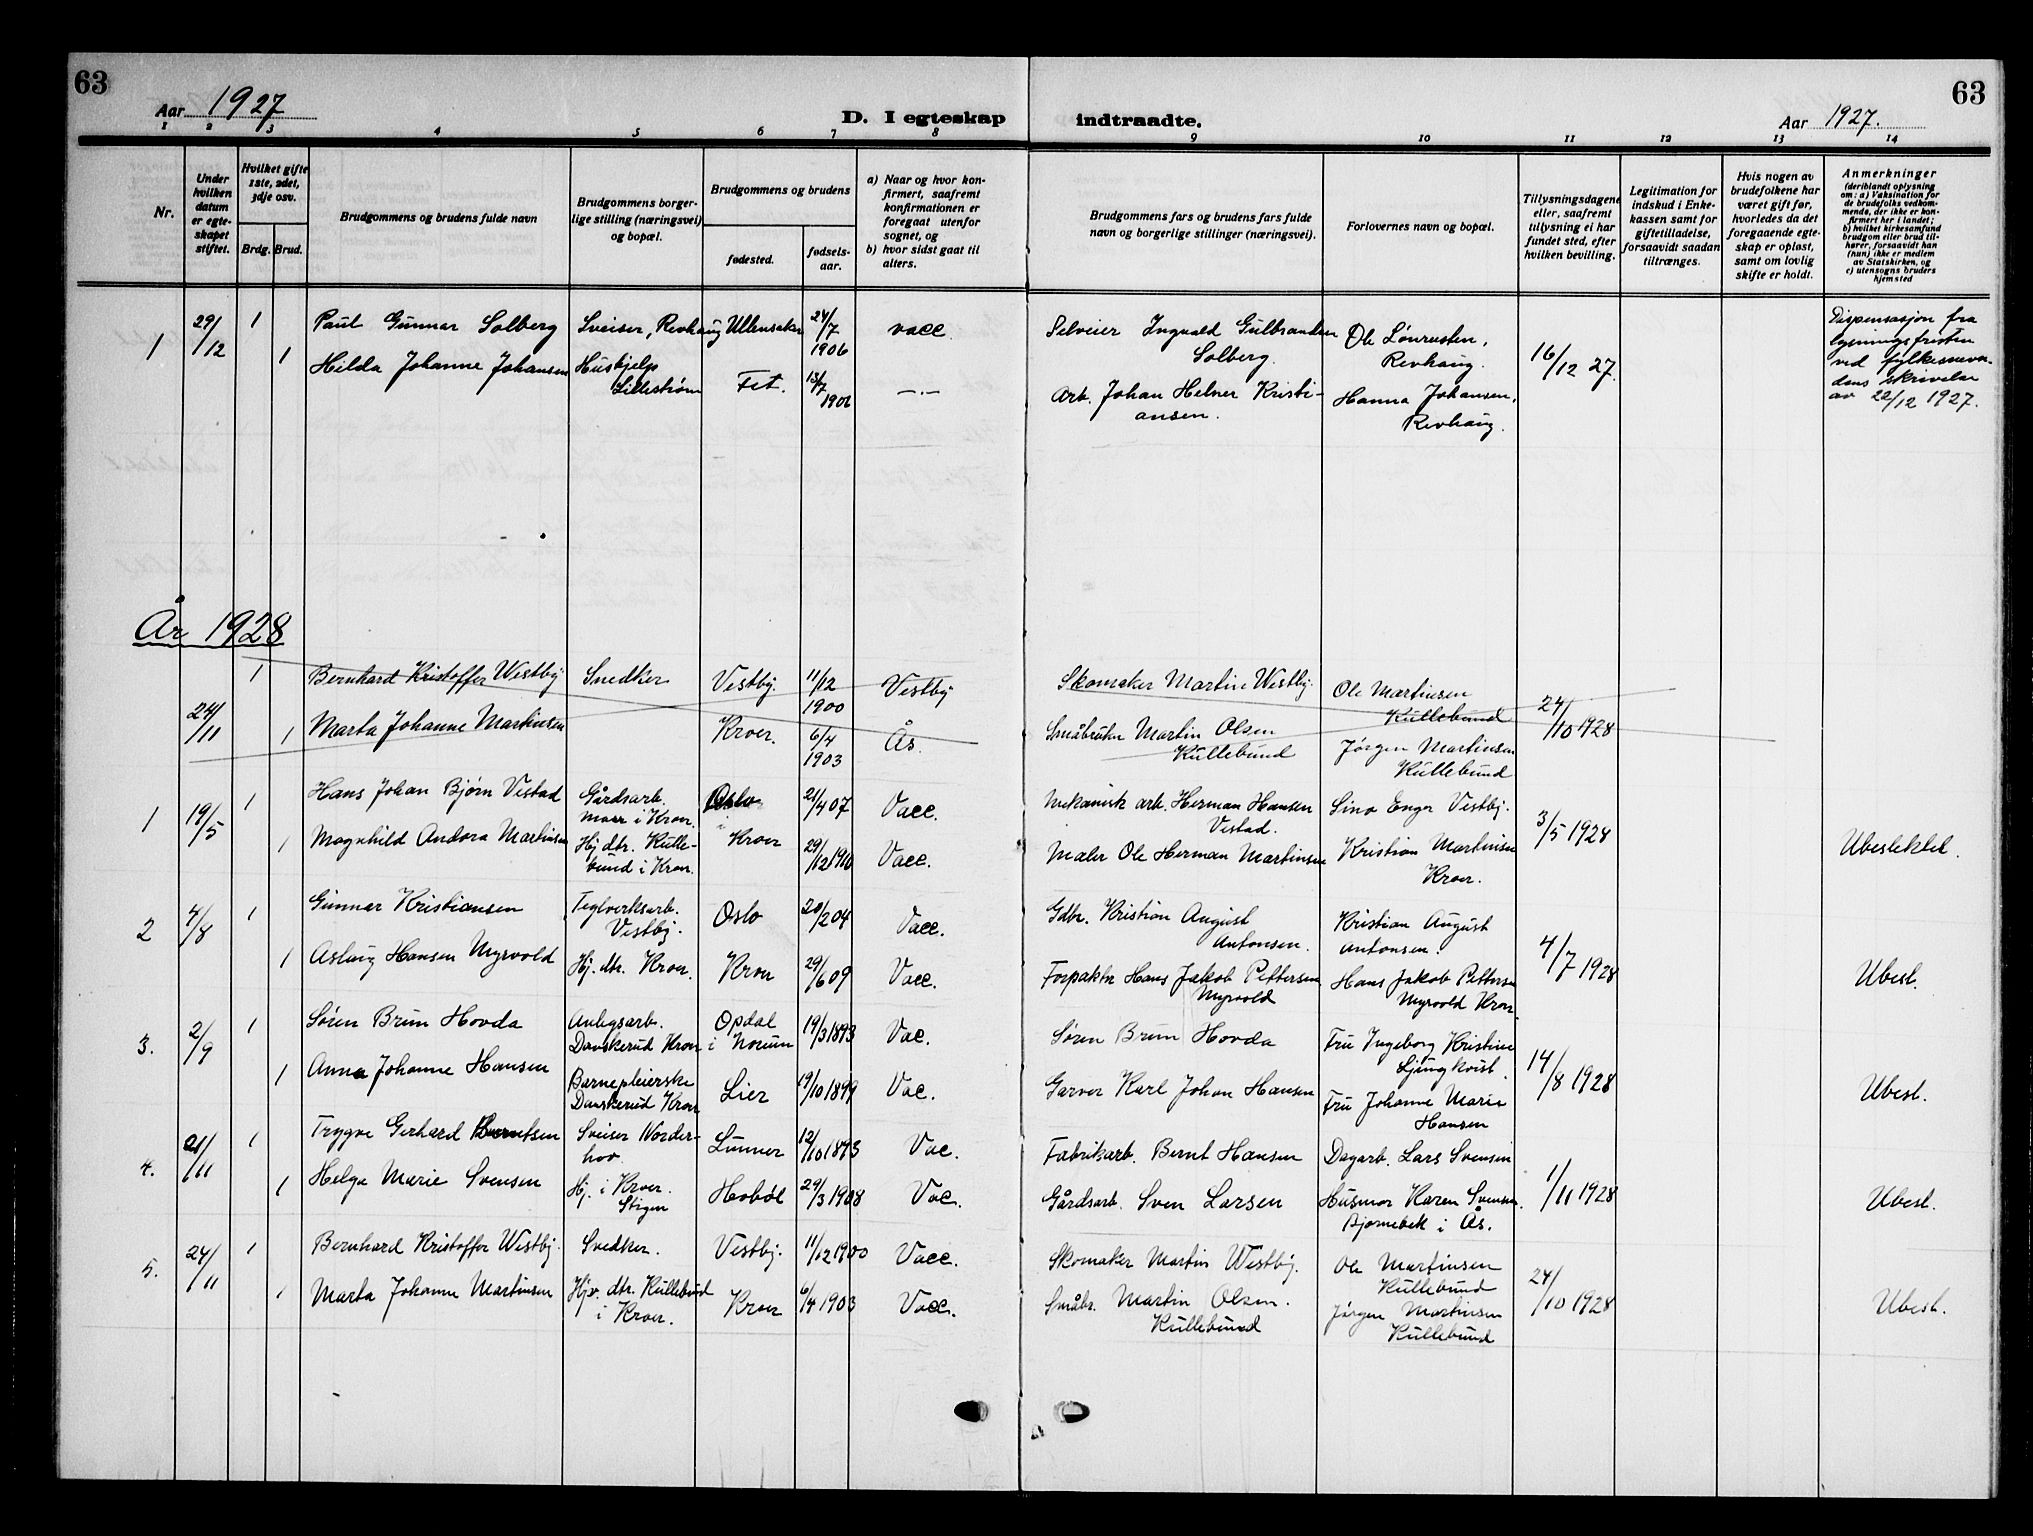 63
63
Aar 1927
D. I egteskap indtraadte.
Aar 1927.
1 2 3 4 5 6 7 8 9 10 11 12 13 14
Nr.
Under hvilken datum er egteskapet stiftet.
Hvilket gifte 1ste, 2det, 3dje osv.
Brdg. Brud.
Brudgommens og brudens fulde navn
Brudgommens borgerlige stilling (næringsvei) og bopæl.
Brudgommens og brudens
fødested.
fødselsaar.
a) Naar og hvor konfirmert, saafremt konfirmationen er foregaat utenfor sognet, og
b) hvor sidst gaat til alters.
Brudgommens fars og brudens fars fulde navn og borgerlige stillinger (næringsvei).
Forlovernes navn og bopæl.
Tillysningsdagene eller, saafremt tillysning ei har fundet sted, efter hvilken bevilling.
Legitimation for indskud i Enkekassen samt for giftetilladelse, forsaavidt saadan tiltrænges.
Hvis nogen av brudefolkene har været gift før, hvorledes da det foregaaende egteskap er opløst, samt om lovlig skifte er holdt.
Anmerkninger
(deriblandt oplysning om: a) Vaksination for de brudefolks vedkommende, der ikke er konfirmert her i landet; b) hvilket kirkesamfund brudgom eller brud tilhører, forsaavidt han (hun) ikke er medlem av Statskirken, og c) utensogns bruders hjemsted
1 29/12 1 Paul Gunnar Solberg Sveiser, Revhaug Ullensaker 24/7 1906 vacc. Selveier Ingvald Gulbrandsen Solberg. Ole Lønrusten, Revhaug. 16/12 27. Dispensasjon fra lysningsfristen ved fylkesmandens skrivelse av 22/12 1927.
1 Hilda Johanne Johansen Hushjelp Lillestrøm Fet. 13/7 1906 — . — Arb. Johan Helner Kristiansen. Hanna Johansen, Revhaug.
År 1928
24/11 1 Bernhard Kristoffer Westby Snedker Vestby. 11/12 1900 Vestby Skomaker Martin Westby. Ole Martinsen Kullebund 24/10 1928
1 Marta Johanne Martinsen Kroer. 6/4 1903 Ås. Småbruker Martin Olsen Kullebund Jørgen Martinsen Kullebund
1 19/5 1 Hans Johan Bjørn Vestad Gårdsarb. Moer i Kroer. Oslo 21/4 07 Vacc. Mekanisk arb. Herman Hansen Vestad. Sina Enger Vestby. 3/5 1928
1 Magnhild Andora Martinsen Hj. dtr. Kullebund i Kroer. Kroer 29/12 1910 Vacc. Maler Ole Herman Martinsen Kristian Martinsen Kroer. Ubeslektet.
2 4/8 1 Gunnar Kristiansen Teglverksarb. Vestby. Oslo 20/2 04 Vacc. Gdbr. Kristian August Antonsen. Kristian August Antonsen. 4/7 1928
1 Aslaug Hansen Myrvold Hj. dtr. Kroer. Kroer 29/6 09 Vacc. Forpakter Hans Jakob Pettersen Myrvold Hans Jakob Pettersen Myrvold Kroer. Ubesl.
3. 2/9 1 Søren Brun Hovda Anlegsarb. Danskerud Kroer Opdal i Numm 19/3 1893 Vac. Søren Brun Hovda Fru Ingeborg Kristine Ljungkvist. 14/8 1928
1 Anna Johanne Hansen Barnepleierske Danskerud Kroer Lier 19/10 1899 Vac. Garver Karl Johan Hansen Fru Johanne Marie Hansen Ubesl.
4. 21/11 1 Trygve Gerhard Berntsen Sveiser Norderhov. Lunner 12/10 1893 Vac. Fabrikarb. Bernt Hansen Dagarb. Lars Svensen 1/11 1928
1 Helga Marie Svensen Hj. i Kroer. Stigen Hobøl 29/3 1908 Vac. Gårdsarb. Sven Larsen Husmor Karen Svensen. Bjørnebek i Ås. Ubesl.
5. 24/11 1 Bernhard Kristoffer Westby. Snedker. Vestby. 11/12 1900 Vacc. Skomaker Martin Westby. Ole Martinsen Kullebund 24/10 1928
1 Marta Johanne Martinsen Hjv. dtr. Kullebund i Kroer. Kroer 6/4 1903 Vacc. Småbr. Martin Olsen. Kullebund Jørgen Martinsen Kullebund Ubesl.